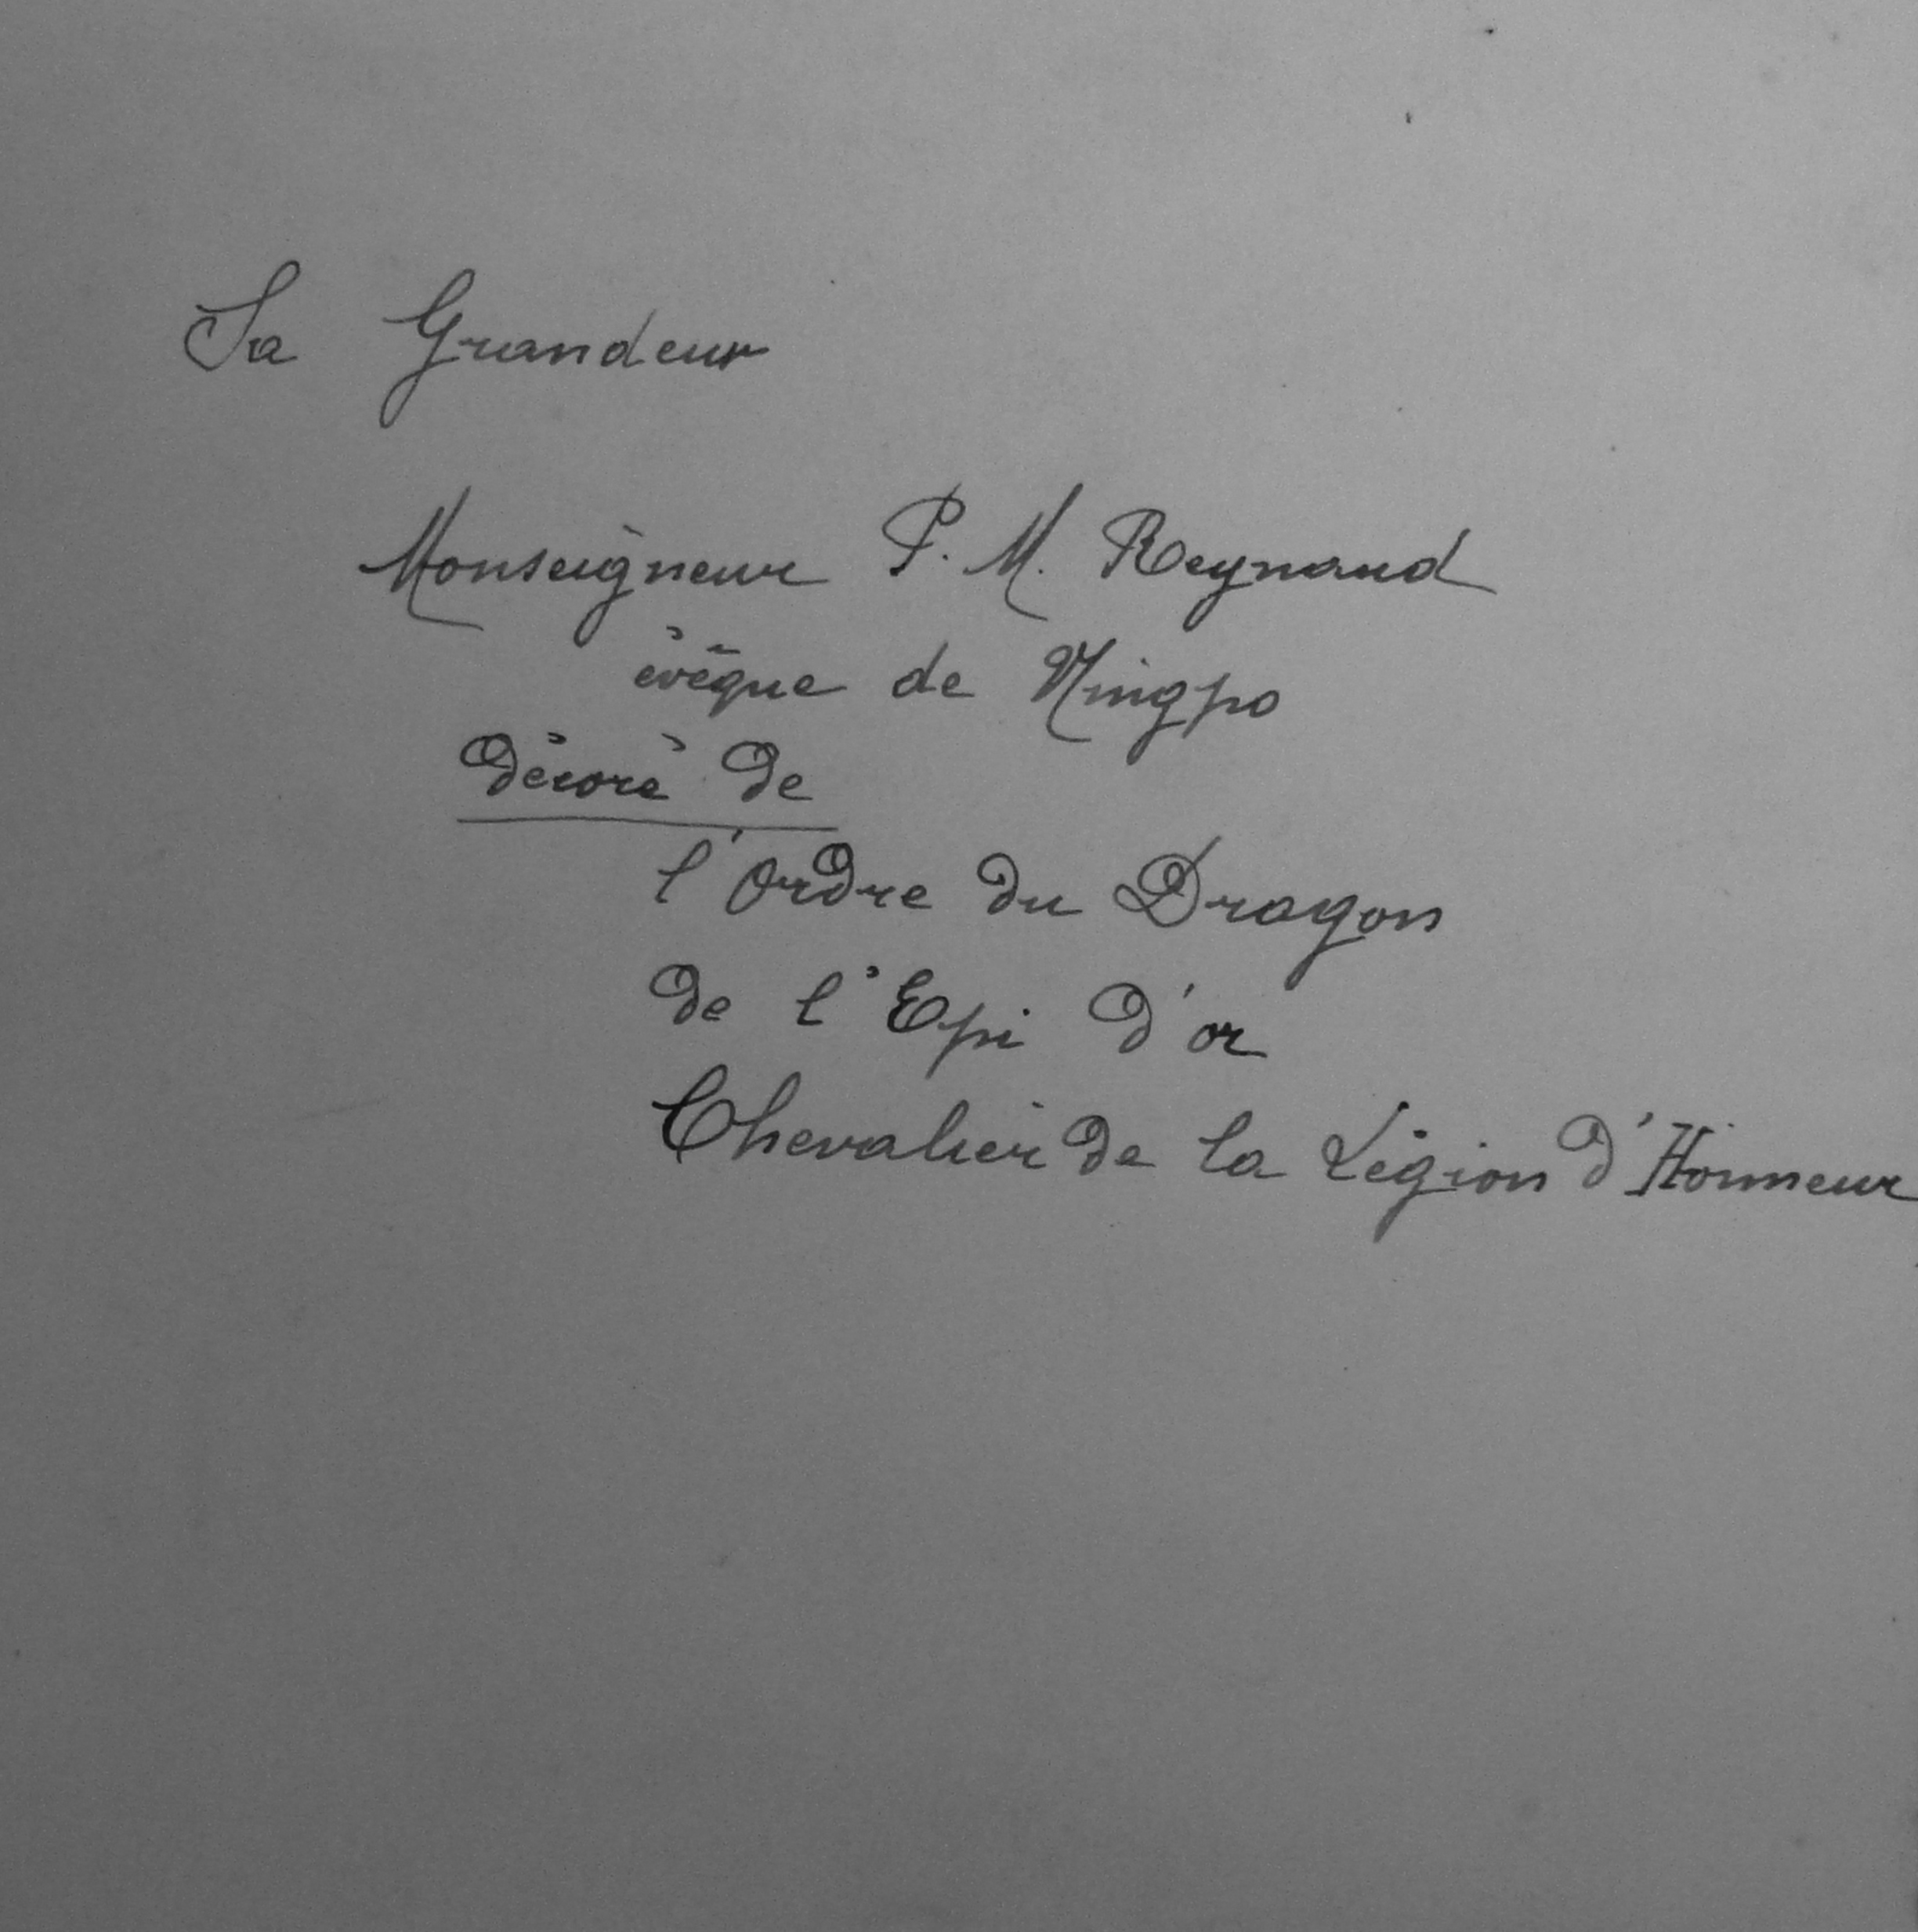 Sa Grandeur
Monseigneur P. M. Reynaud
évêque de Ningpo
Décoré de
l'Ordre du Dragon
de l'Epi d'or
Chevalier de la Légion d'Honneur